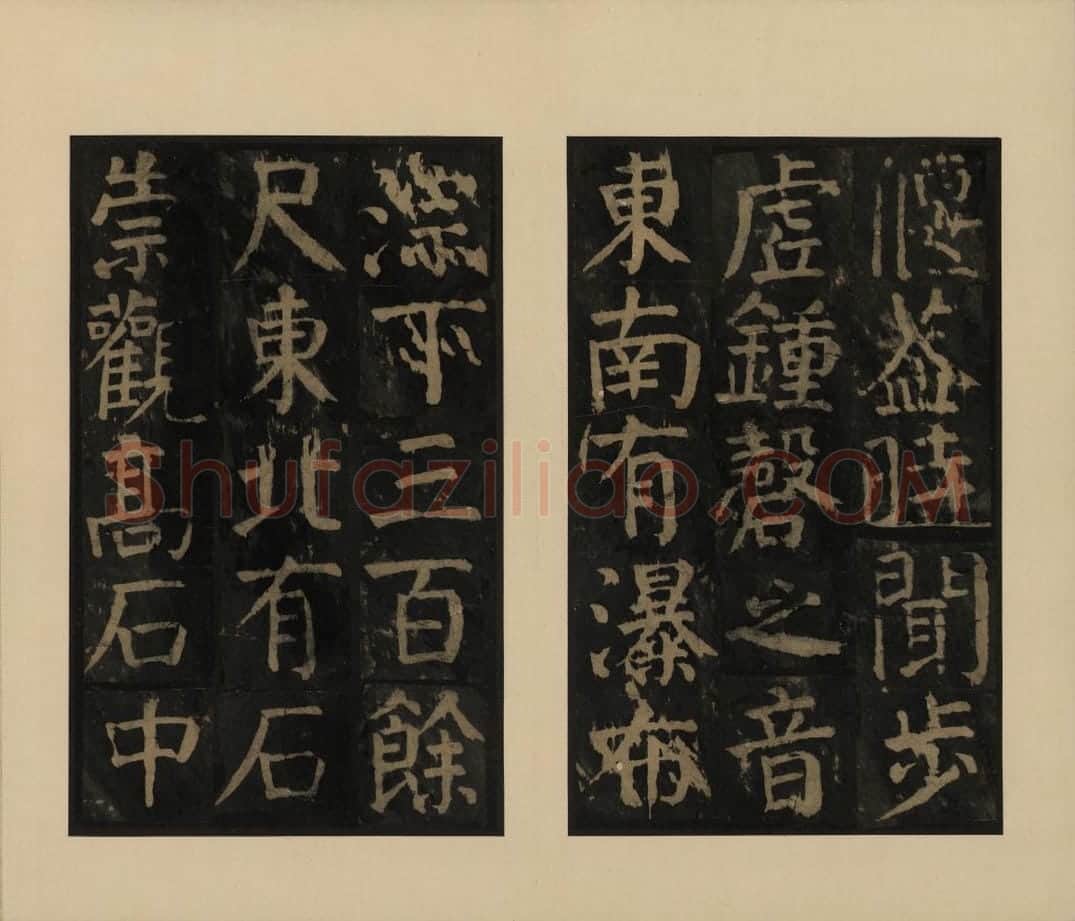 偃蓋時聞步
虛鍾磬之音
東南有瀑布
淙下三百餘
尺東北有石
崇觀高石中
Shufaziliao.COM